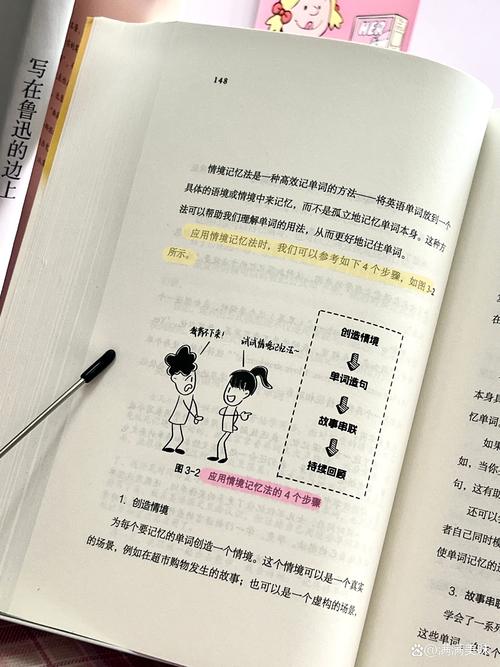 HER
写在鲁迅的边上
148
情境记忆法是一种高效记单词的方法——将英语单词放到一个
具体的语境或情境中来记忆，而不是孤立地记忆单词本身。这种方
法可以帮助我们理解单词的用法，从而更好地记住单词。
应用情境记忆法时，我们可以参考如下4个步骤，如图3-2
所示。
我背不下来！
试试情境记忆法~
创造情境
单词造句
故事串联
持续回顾
图3-2 应用情境记忆法的4个步骤
1. 创造情境
为每个要记忆的单词创造一个情境。这个情境可以是一个真实
的场景，例如在超市购物发生的故事；也可以是一个虚构的场景，
本身具
忆单词
如果
如，当你
句，这有助
还可以
者自己同时模
使单词记忆的
3. 故事串联
学会了一系列
这些单词。例
满满美味